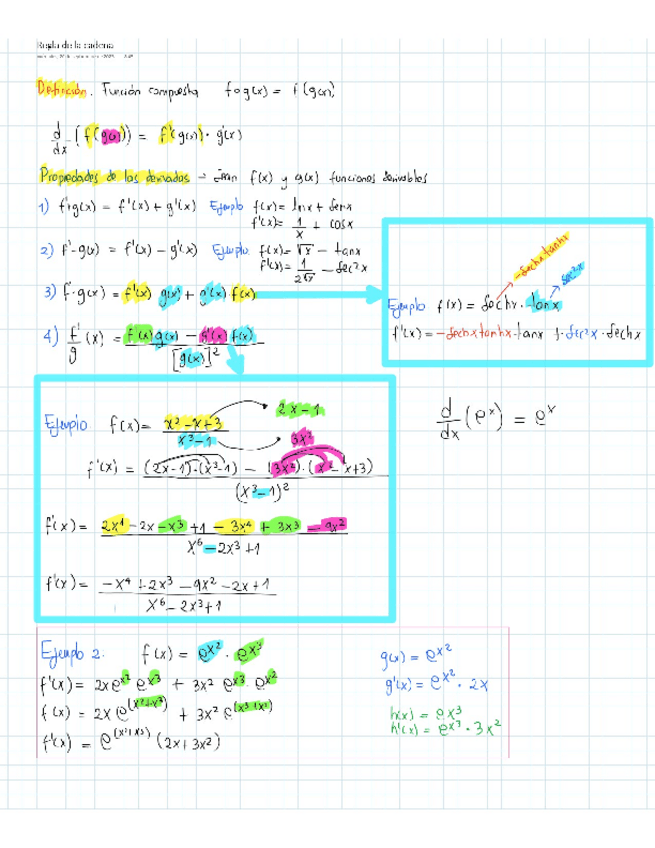 Regla de la cadena
Definición. Función compuesta fog(x) = f(g(x))
d/dx (f(g(x))) = f'(g(x)) · g'(x)
Propiedades de las derivadas - Sean f(x) y g(x) funciones derivables
1) f+g(x) = f'(x) + g'(x) Ejemplo f(x) = lnx + senx
f'(x) = 1/x + cosx
2) f-g(x) = f'(x) - g'(x) Ejemplo f(x) = √x - tanx
f'(x) = 1/2√x - sec²x
3) f·g(x) = f'(x) g(x) + g'(x) f(x)
-sechxtanhx
sec²x
Ejemplo f(x) = sechx · tanx
f'(x) = -sechxtanhx·tanx + sec²x · sechx
4) f/g (x) = f'(x)g(x) - g'(x)f(x) / [g(x)]²
Ejemplo f(x) = x²-x+3 / x³-1
2x-1
3x²
f'(x) = (2x-1)·(x³-1) - (3x²)·(x²-x+3) / (x³-1)²
f'(x) = 2x⁴ -2x -x³ +1 -3x⁴ + 3x³ -9x² / x⁶ -2x³ +1
f'(x) = -x⁴ +2x³ -9x² -2x +1 / x⁶ -2x³ +1
d/dx (eˣ) = eˣ
Ejemplo 2. f(x) = e^x² · e^x³
f'(x) = 2x e^x² e^x³ + 3x² e^x³ e^x²
f(x) = 2x e^(x²+x³) + 3x² e^(x³+x²)
f'(x) = e^(x²+x³) (2x+3x²)
g(x) = e^x²
g'(x) = e^x² · 2x
h(x) = e^x³
h'(x) = e^x³ · 3x²